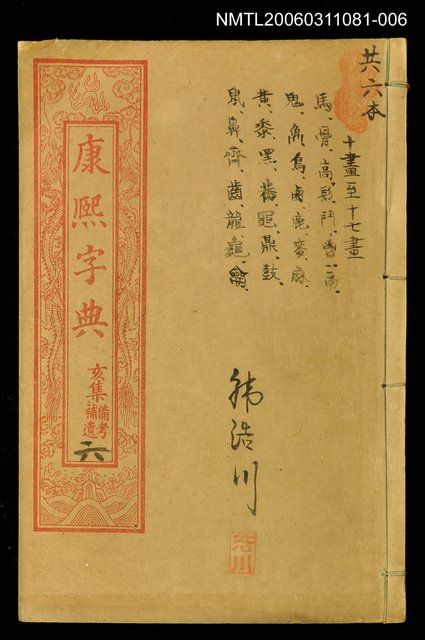 NMTL20060311081-006
共六本
十畫至十七畫
馬、骨、高、髟、鬥、鬯、鬲、
鬼、魚、鳥、鹵、鹿、麥、麻、
黃、黍、黑、黹、黽、鼎、鼓、
鼠、鼻、齊、齒、龍、龜、龠、
浩川
浩川
康熙字典
亥集
備考
補遺
六